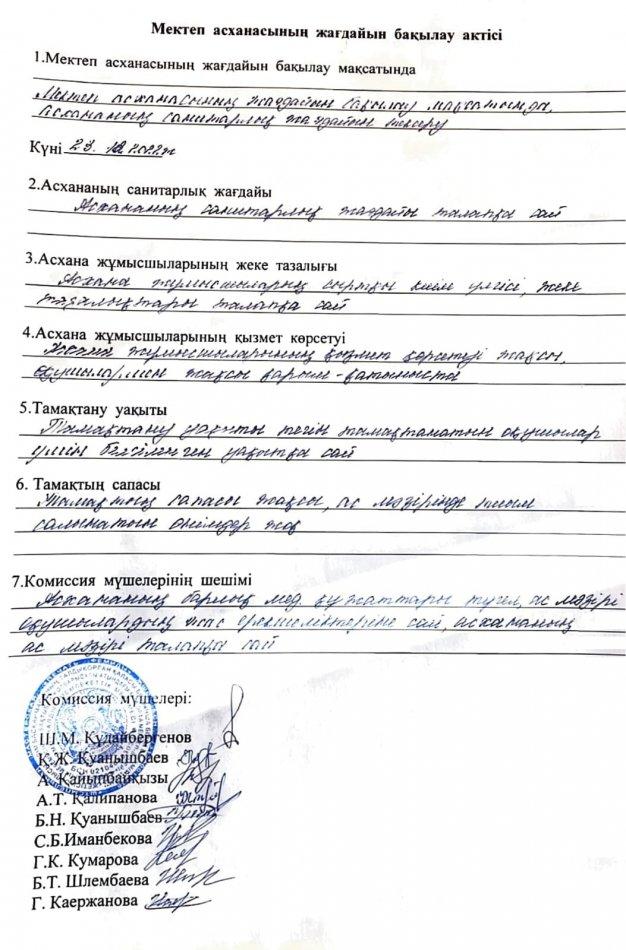 Мектеп асханасының жағдайын бақылау актісі
1.Мектеп асханасының жағдайын бақылау мақсатында
Мектеп асханасының жағдайын бақылау мақсатында,
Асхананың санитарлық жағдайын тексеру
Күні 23.
2.Асхананың санитарлық жағдайы
Асхананың санитарлық жағдайы талапқа сай
3.Асхана жұмысшыларының жеке тазалығы
Асхана жұмысшыларың сыртқы киім үлгісі, жеке
тазалықтары талапқа сай
4.Асхана жұмысшыларының қызмет көрсетуі
Асхана жұмысшыларының қызмет көрсетуі жақсы,
оқушылармен жақсы қарым-қатынаста
5.Тамақтану уақыты
Тамақтану уақыты тегін тамақтанатын оқушылар
үшін белгіленген уақытқа сай
6. Тамақтың сапасы
Тамақтың сапасы жақсы, ас мәзірінде тиым
салынатын өнімдер жоқ
7.Комиссия мүшелерінің шешімі
Асхананың барлық мед. құжаттары түгел, ас мәзірі
оқушылардың жас ерекшеліктеріне сай, асхананың
ас мәзірі талапқа сай
Комиссия мүшелері:
Ш.М. Құдайбергенов
Қ.Ж. Қуанышбаев
А. Қайыпбайқызы
А.Т. Қалипанова
Б.Н. Қуанышбаев
С.Б.Иманбекова
Г.К. Кумарова
Б.Т. Шлембаева
Г. Каержанова